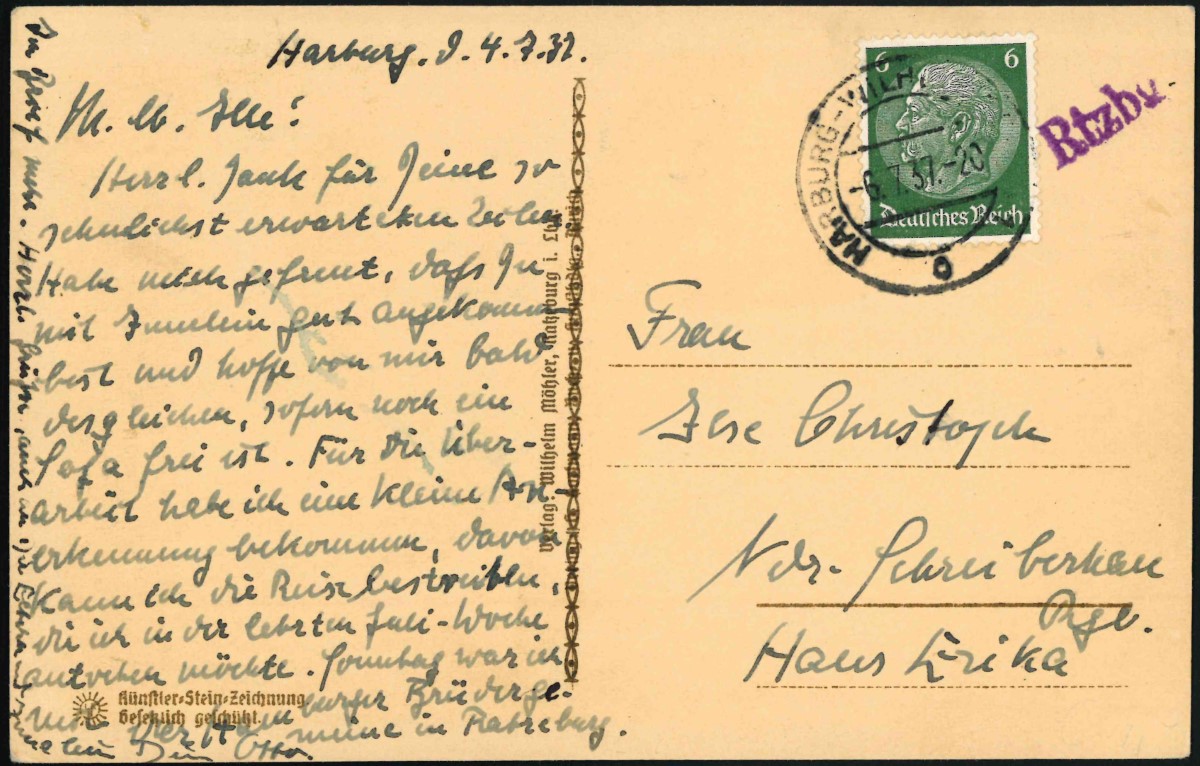 Harburg. d. 4.7.37.
M. lb. Ilse!
Herzl. Dank für Deine so
sehnlichst erwarteten Zeilen
Habe mich gefreut, dass Du
mit gut angekommen
bist und hoffe von mir bald
desgleichen, sofern noch ein
Sofa frei ist. Für die Über-
arbeit habe ich eine kleine An-
erkennung bekommen, davon
kann ich die Reise bestreiten,
die ich in der letzten Juli-Woche
antreten möchte. Sonntag war ich
mit der Hamburger Brüderge-
meine in Ratzeburg.
Im Brief mehr. Herzl. Grüße, auch an die Eltern
Dein Otto.
Künstler-Stein-Zeichnung
Gesetzlich geschützt.
Verlag: Wilhelm Möhler, Ratzeburg i. Lbg.
6 6
Deutsches Reich
HARBURG-WILH
-6.7.37.-20
o
Rtzbu
Frau
Ilse Christoph
Ndr. Schreiberhau
Rgb.
Haus Erika